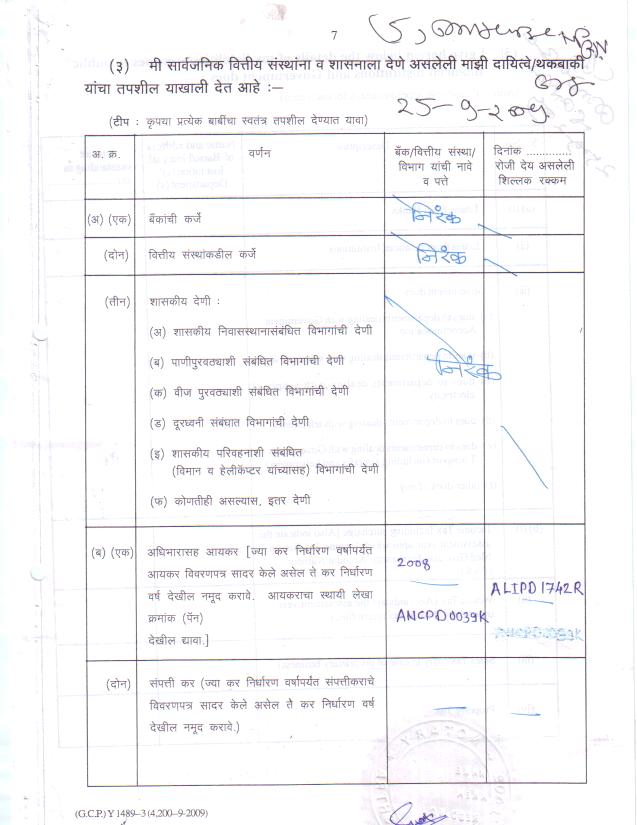 7
(३) मी सार्वजनिक वित्तीय संस्थांना व शासनाला देणे असलेली माझी दायित्वे/थकबाकी
यांचा तपशील याखाली देत आहे :—
25-9-2009
(टीप : कृपया प्रत्येक बाबींचा स्वतंत्र तपशील देण्यात यावा)
अ. क्र. वर्णन बँक/वित्तीय संस्था/ दिनांक ..............
विभाग यांची नावे रोजी देय असलेली
व पत्ते शिल्लक रक्कम
(अ) (एक) बँकांची कर्जे निरंक
(दोन) वित्तीय संस्थांकडील कर्जे निरंक
(तीन) शासकीय देणी :
(अ) शासकीय निवासस्थानासंबंधित विभागांची देणी
(ब) पाणीपुरवठ्याशी संबंधित विभागांची देणी निरंक
(क) वीज पुरवठ्याशी संबंधित विभागांची देणी
(ड) दूरध्वनी संबंधात विभागांची देणी
(इ) शासकीय परिवहनाशी संबंधित
(विमान व हेलीकॅप्टर यांच्यासह) विभागांची देणी
(फ) कोणतीही असल्यास, इतर देणी
(ब) (एक) अधिभारासह आयकर [ज्या कर निर्धारण वर्षापर्यंत 2008
आयकर विवरणपत्र सादर केले असेल ते कर निर्धारण
वर्ष देखील नमूद करावे. आयकराचा स्थायी लेखा ALIPD1742R
क्रमांक (पॅन) ANCPD0039K
देखील द्यावा.]
(दोन) संपत्ती कर (ज्या कर निर्धारण वर्षापर्यंत संपत्तीकराचे
विवरणपत्र सादर केले असेल तै कर निर्धारण वर्ष
देखील नमूद करावे.)
(G.C.P.) Y 1489–3 (4,200–9–2009)